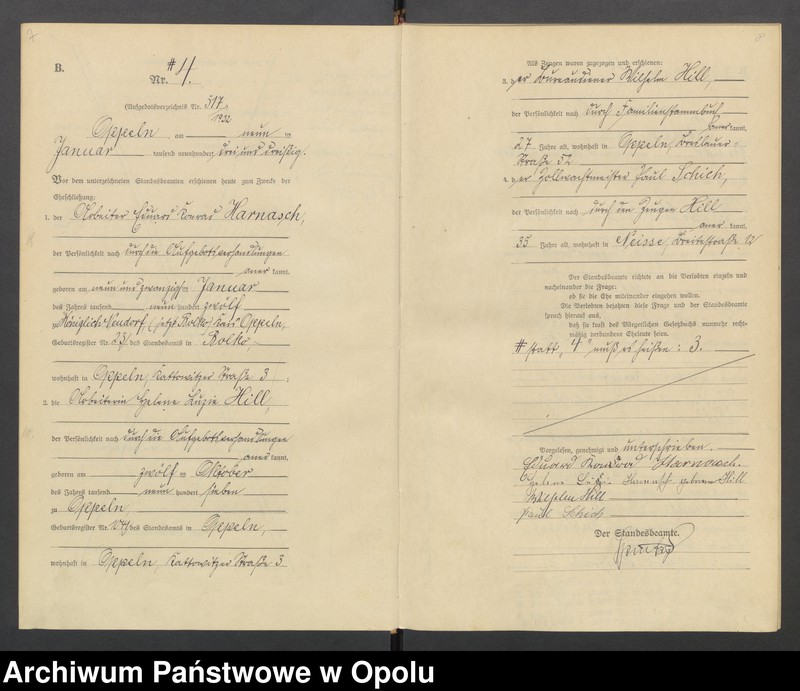 B.
Nr. #4.
(Aufgebotsverzeichnis Nr. 517
1932
Oppeln am neun ten
Januar tausend neunhundert dreiunddreißig.
Vor dem unterzeichneten Standesbeamten erschienen heute zum Zwecke der
Eheschließung:
1. der Arbeiter Eduard Konrad Harnasch,
der Persönlichkeit nach durch die Aufgebotsverhandlungen
aner kannt,
geboren am neun und zwanzigsten Januar
des Jahres tausend neun hundert zwölf
zu Königlich Neudorf (jetzt Bolko) Kreis Oppeln,
Geburtsregister Nr. 23 des Standesamts in Bolko,
wohnhaft in Oppeln, Kattowitzer Straße 3;
2. die Arbeiterin Helene Luzie Hill,
der Persönlichkeit nach durch die Aufgebotsverhandlungen
aner kannt,
geboren am zwölf ten Oktober
des Jahres tausend neun hundert sieben
zu Oppeln,
Geburtsregister Nr. des Standesamts in Oppeln,
wohnhaft in Oppeln, Kattowitzer Straße 3
Als Zeugen waren zugezogen und erschienen:
3. der Bürodiener Wilhelm Hill,
der Persönlichkeit nach durch Familienstammbuch
aner kannt,
27 Jahre alt, wohnhaft in Oppeln, Breslauer-
Straße 52
4. der Zollwachtmeister Paul Schich,
der Persönlichkeit nach durch den Zeugen Hill
aner kannt,
35 Jahre alt, wohnhaft in Neisse, Breitestraße 12
Der Standesbeamte richtete an die Verlobten einzeln und
nacheinander die Frage:
ob sie die Ehe miteinander eingehen wollen.
Die Verlobten bejahten diese Frage und der Standesbeamte
sprach hierauf aus,
daß sie kraft des Bürgerlichen Gesetzbuchs nunmehr recht-
mäßig verbundene Eheleute seien.
# statt "4" muß es heißen: 3.
Vorgelesen, genehmigt und unterschrieben.
Eduard Konrad Harnasch.
Helene Luzie Harnasch geborene Hill
Wilhelm Hill
Paul Schich
Der Standesbeamte.
Archiwum Państwowe w Opolu